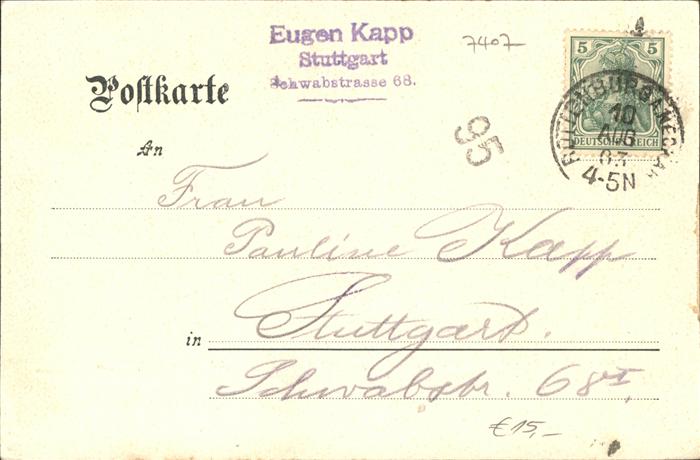 Eugen Kapp
Stuttgart
Schwabstrasse 68.
7407
5 5
DEUTSCHES REICH
ROTTENBURG A NECKAR
10
AUG
03
4-5N
95
Postkarte
An
Frau
Pauline Kapp
in Stuttgart.
Schwabstr. 68 I.
€ 15,-